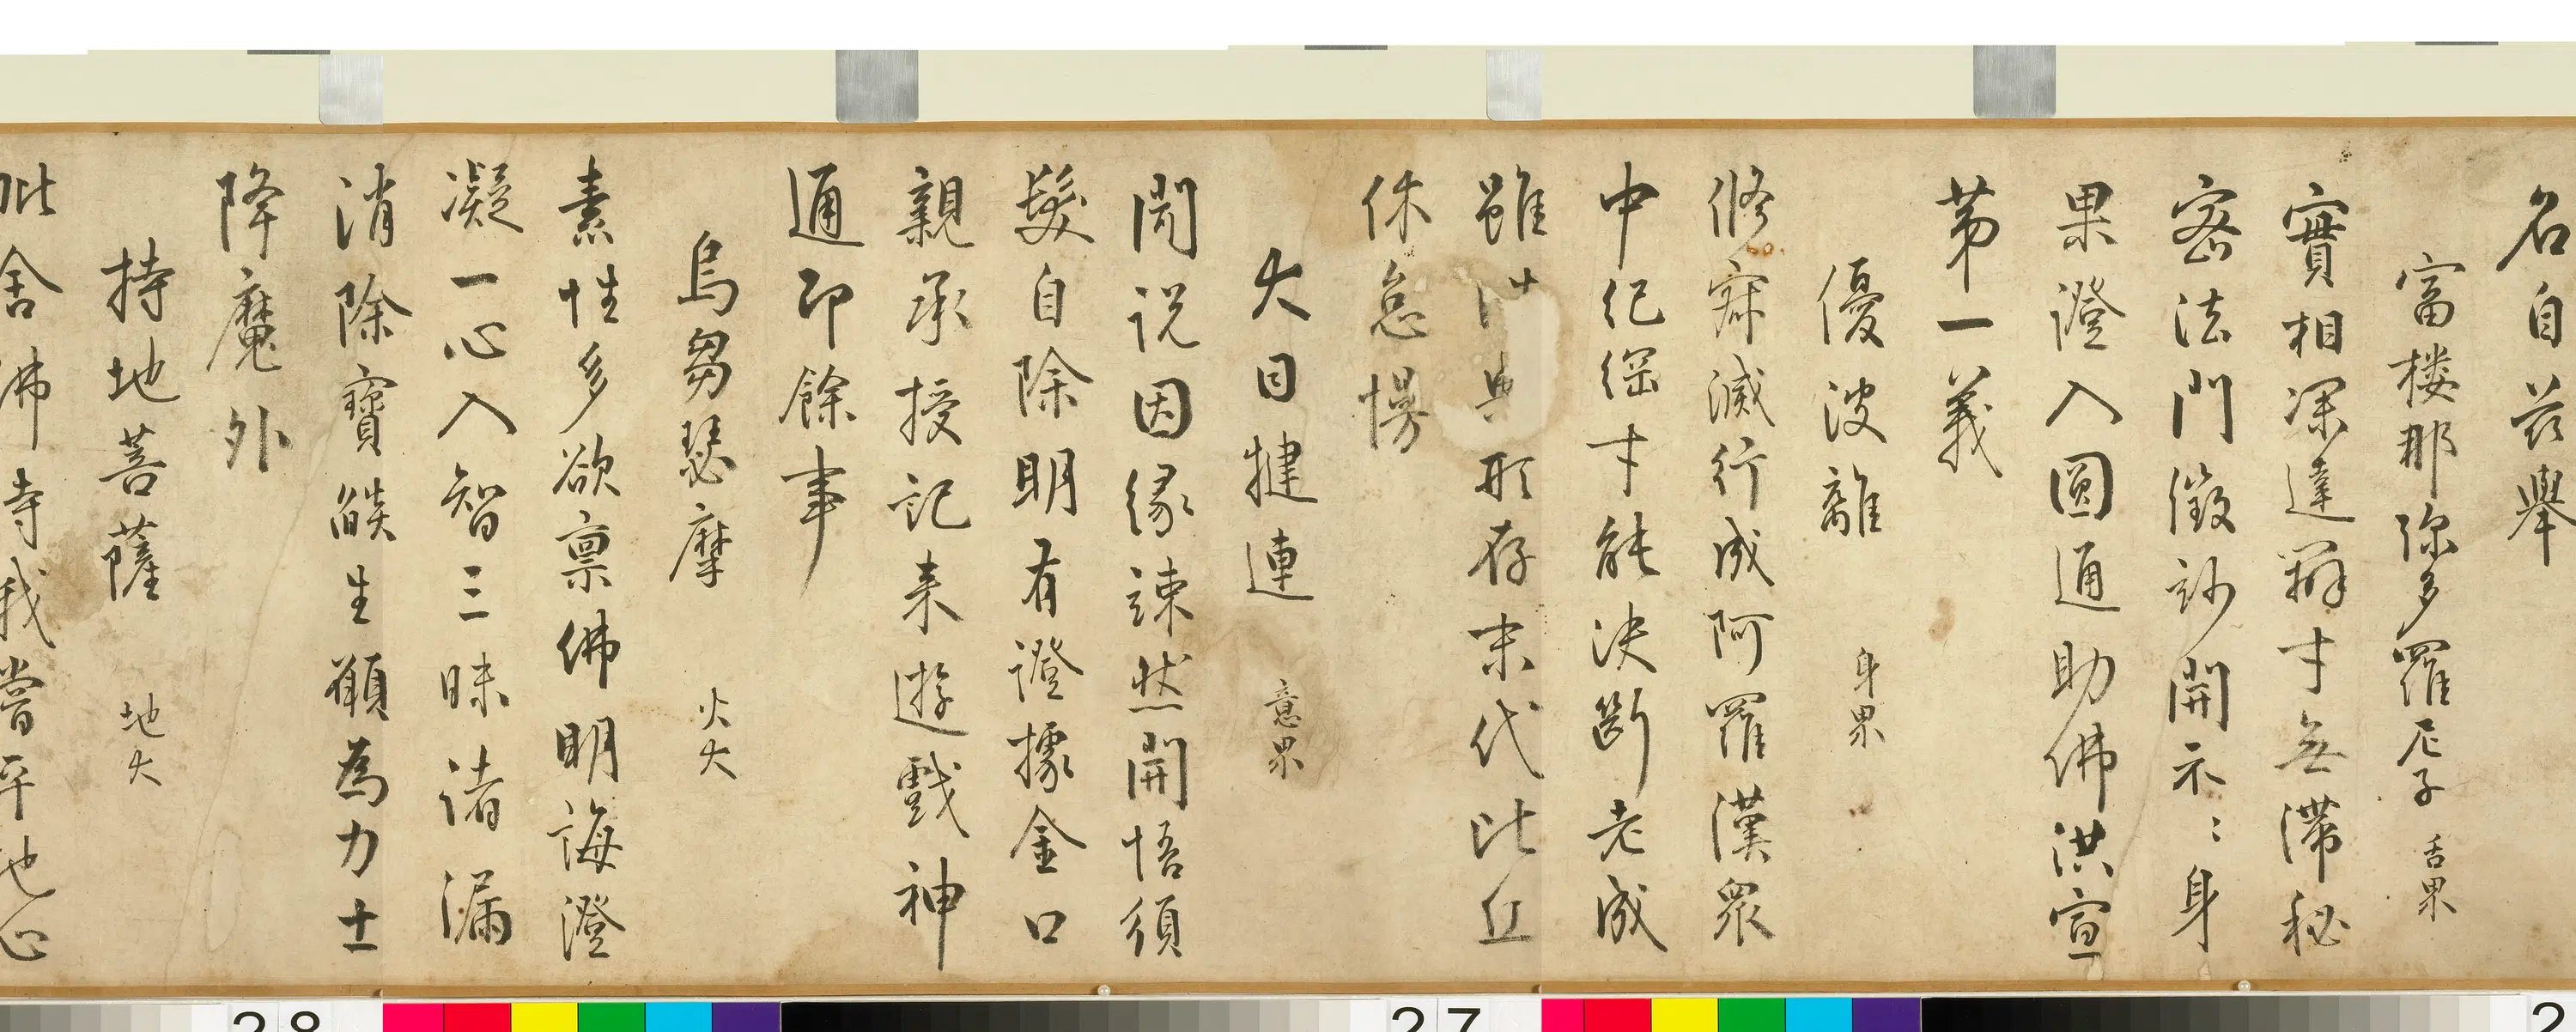 名自茲舉
富樓那弥多羅尼子 舌果
實相深達辯才無滯秘
密法門微妙開示〻身
果證入圓通助佛洪宣
第一義
優波離 身果
修寂滅行成阿羅漢眾
中紀綱才能決斷老成
雖典形存末代比丘
休怠慢
大目犍連 意果
聞說因緣竦然開悟須
髮自除明有證據金口
親承授記来遊戲神
通即餘事
烏芻瑟摩 火大
素性多欲禀佛明誨澄
凝一心入智三昧諸漏
消除寶燄生願為力士
降魔外
持地菩薩 地大
毗舍佛寺我嘗平地心
28
27
2